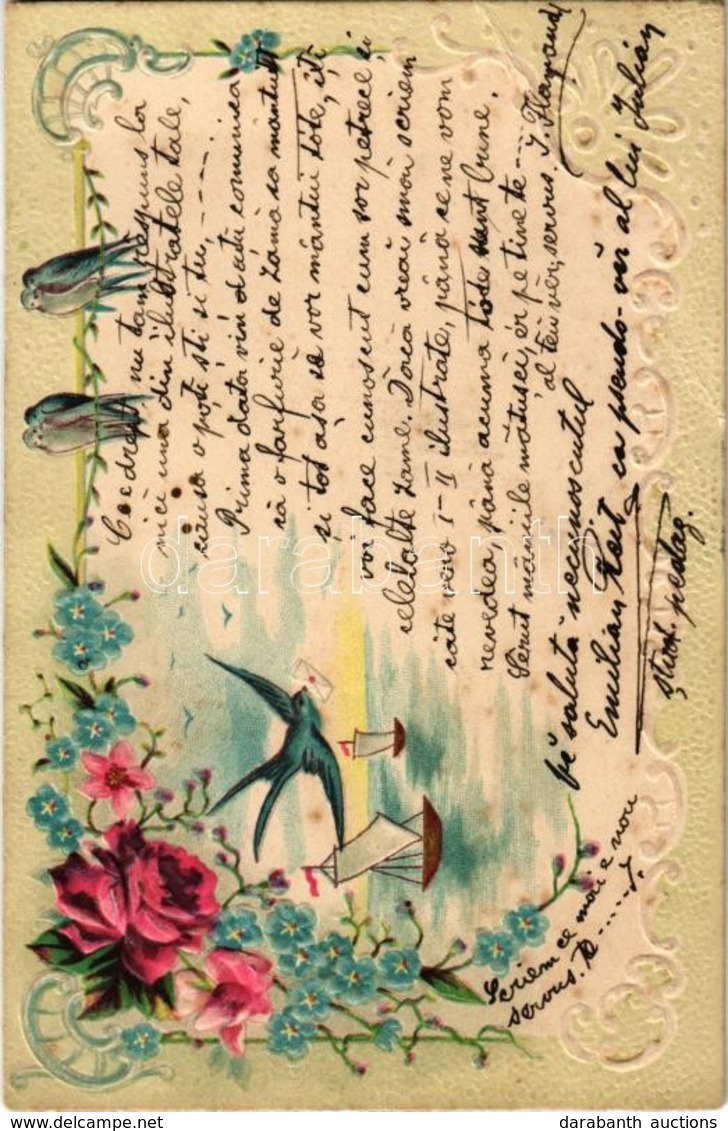 Ce e drept, nu t'am respuns la
nici una din ilustratele tale,
causa o poti sti si tu, -----
Prima data vin a ati comunica
ca o farfurie de zamă sa mântuit
si tot asa se vor mântui tóte, iti
voi face cunoscut cum sor petrece si
celelalte zame. Dacă vreai smai scriem
câte vero I-II ilustrate, până ce ne vom
nevedea, până acuma tóte sunt bune.
Serut mâniile mătusei, er pe tine te ---
al teu vĕr, servus. I.
pĕ saluta necunoscutul
Emilian ca pseudo-vĕr al lui Iulian
stud. pedag.
Scriem ce mai e nou
servus. -----
darabanth
darabanth auctions